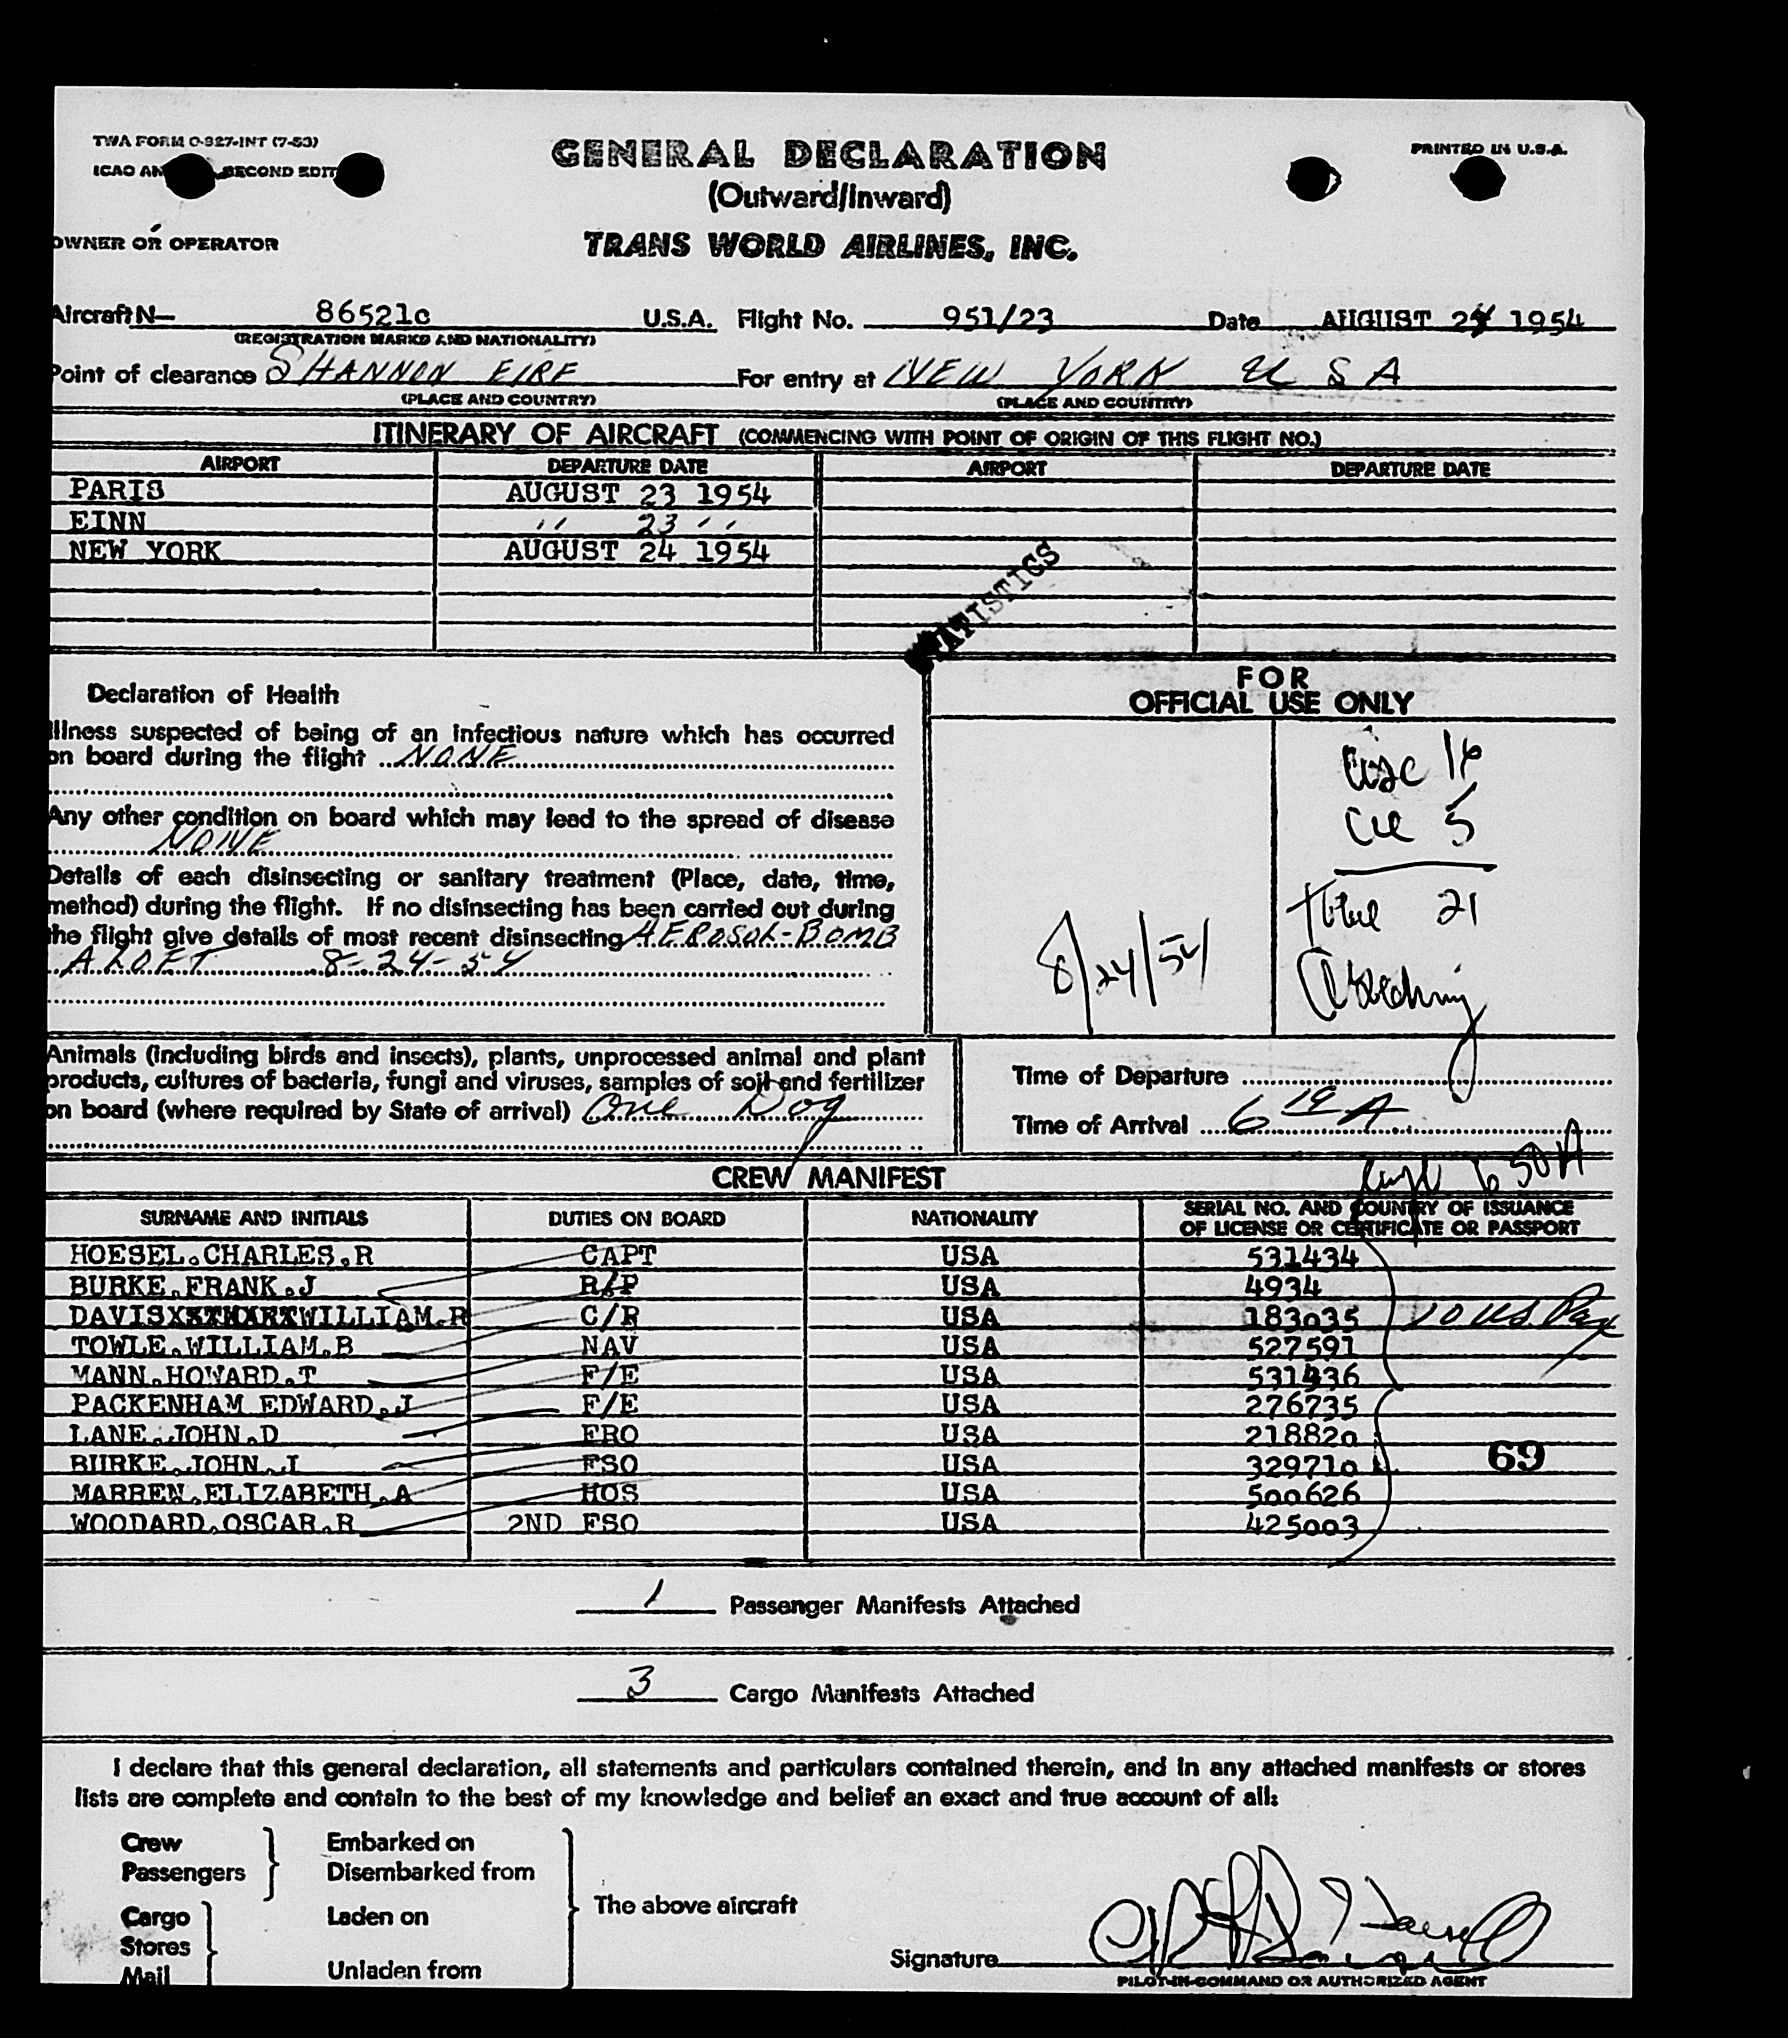 TWA FORM O-927-INT (7-53)
PRINTED IN U.S.A.
GENERAL DECLARATION
ICAO AN SECOND EDIT
(Outward/Inward)
OWNER OR OPERATOR
TRANS WORLD AIRLINES, INC.
Aircraft N— 86521c U.S.A. Flight No. 951/23 Date AUGUST 24 1954
(REGISTRATION MARKS AND NATIONALITY)
Point of clearance SHANNON EIRE For entry at NEW YORK USA
(PLACE AND COUNTRY) (PLACE AND COUNTRY)
ITINERARY OF AIRCRAFT (COMMENCING WITH POINT OF ORIGIN OF THIS FLIGHT NO.)
AIRPORT DEPARTURE DATE AIRPORT DEPARTURE DATE
PARIS AUGUST 23 1954
EINN '' 23 ''
NEW YORK AUGUST 24 1954
STATISTICS
Declaration of Health
FOR
OFFICIAL USE ONLY
Illness suspected of being of an infectious nature which has occurred
on board during the flight NONE
Any other condition on board which may lead to the spread of disease
NONE
Details of each disinsecting or sanitary treatment (Place, date, time,
method) during the flight. If no disinsecting has been carried out during
the flight give details of most recent disinsecting AEROSOL-BOMB
ALOFT 8-24-54
16
5
21
8/24/54
Animals (including birds and insects), plants, unprocessed animal and plant
products, cultures of bacteria, fungi and viruses, samples of soil and fertilizer
on board (where required by State of arrival) One Dog
Time of Departure
Time of Arrival 6 19 A
6 50 A
CREW MANIFEST
SURNAME AND INITIALS DUTIES ON BOARD NATIONALITY SERIAL NO. AND COUNTRY OF ISSUANCE OF LICENSE OR CERTIFICATE OR PASSPORT
HOESEL.CHARLES.R CAPT USA 531434
BURKE.FRANK.J R/P USA 4934
DAVISXSTUARTWILLIAM.R C/R USA 183035
TOWLE.WILLIAM.B NAV USA 527591
MANN.HOWARD.T F/E USA 531436
PACKENHAM EDWARD.J F/E USA 276735
LANE.JOHN.D FRO USA 218820
BURKE.JOHN.J FSO USA 329710
MARREN.ELIZABETH.A HOS USA 500626
WOODARD.OSCAR.R 2ND FSO USA 425003
10 US Pax
69
1 Passenger Manifests Attached
3 Cargo Manifests Attached
I declare that this general declaration, all statements and particulars contained therein, and in any attached manifests or stores
lists are complete and contain to the best of my knowledge and belief an exact and true account of all:
Crew
Passengers
Embarked on
Disembarked from
Cargo
Stores
Mail
Laden on
Unladen from
The above aircraft
Signature
PILOT-IN-COMMAND OR AUTHORIZED AGENT